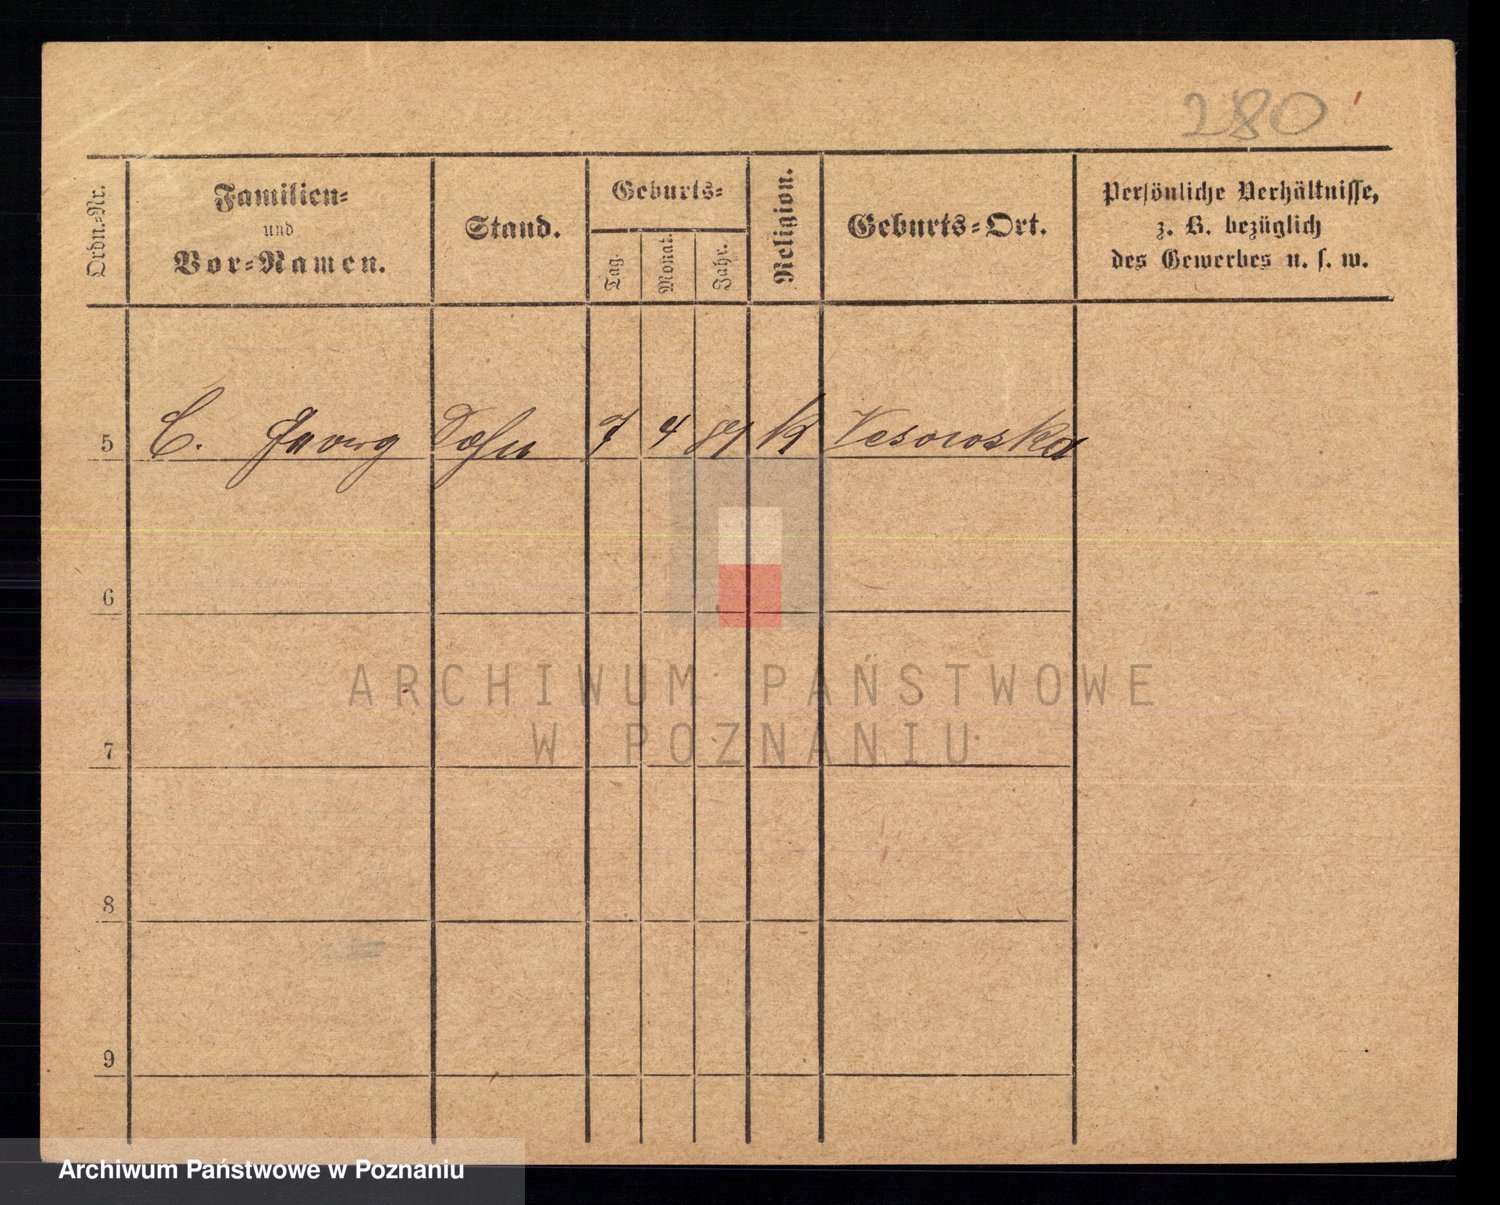 280
Ordn.=Nr.
Familien=
und
Vor=Namen.
Stand.
Geburts=
Tag.
Monat.
Jahr.
Religion.
Geburts=Ort.
Persönliche Verhältnisse,
z. B. bezüglich
des Gewerbes u. s. w.
5 C. Georg Sohn 7 4 81 K Vesowska
6
7
8
9
ARCHIWUM PAŃSTWOWE
W POZNANIU
Archiwum Państwowe w Poznaniu